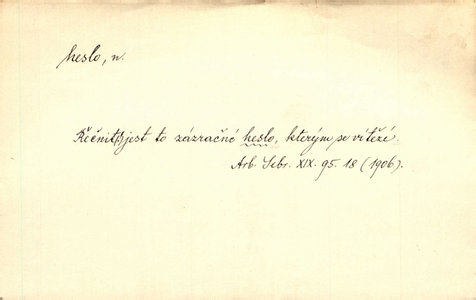 heslo, n.
jest to zázračné heslo, kterým se vítězí.
Arb. Sebr. XIX. 95. 18 (1906).